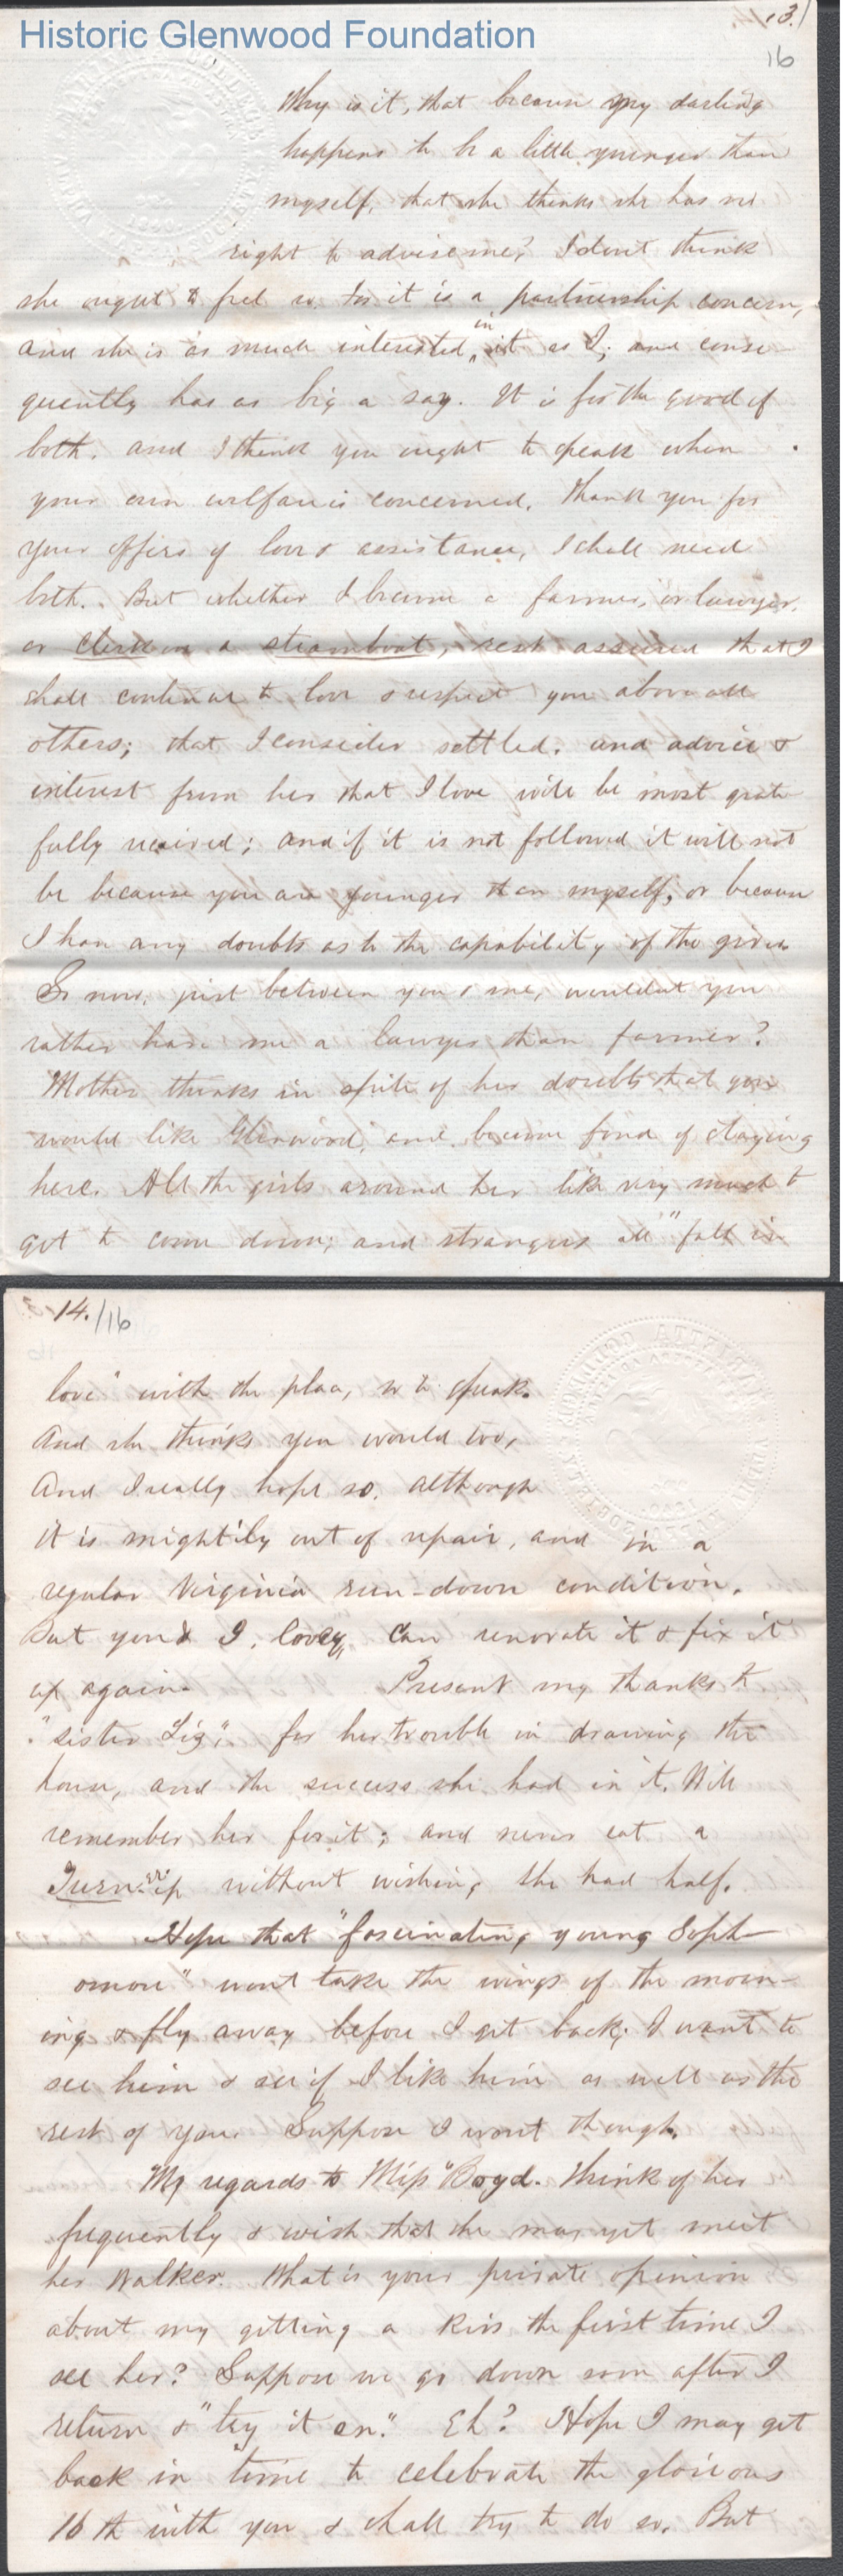 Historic Glenwood Foundation
13.
16
Why is it, that because my darling
happens to be a little younger than
myself, that she thinks she has no
right to advise me? I dont think
she ought to feel so. for it is a partnership concern,
and she is as much interested in it as I; and conse-
quently has as big a say. It is for the good of
both. and I think you ought to speak when
your own welfare is concerned. Thank you for
your offers of love & assistance, I shall need
both. But whether I become a farmer, or lawyer,
or clerk on a steamboat, rest assured that I
shall continue to love & respect you above all
others; that I consider settled. and advice &
interest from her that I love will be most grate
fully received; and if it is not followed it will not
be because you are younger than myself, or because
I have any doubts as to the capability of the giver.
So now, just between you & me, wouldnt you
rather have me a lawyer than farmer?
Mother thinks in spite of her doubts that you
would like Glenwood, and become fond of staying
here. All the girls around her like very much to
get to come down; and strangers all "fall in
14./16
love" with the place, so to speak.
And she thinks you would too,
And I really hope so. although
it is mightily out of repair, and in a
regular Virginia run-down condition.
But you & I, lovey, can renovate it & fix it
up again. Present my thanks to
"sister Liz", for her trouble in drawing the
house, and the success she had in it. Will
remember her for it; and never eat a
Turnip without wishing she had half.
Hope that "fascinating young Soph-
omore" wont take the wings of the morn-
ing & fly away before I get back; I want to
see him & see if I like him as well as the
rest of you. Suppose I wont though.
My regards to Miss Boyd. Think of her
frequently & wish that she may yet meet
her Walker. What is your private opinion
about my getting a kiss the first time I
see her? Suppose we go down soon after I
return & "try it on." Eh? Hope I may get
back in time to celebrate the glorious
16th with you & shall try to do so. But